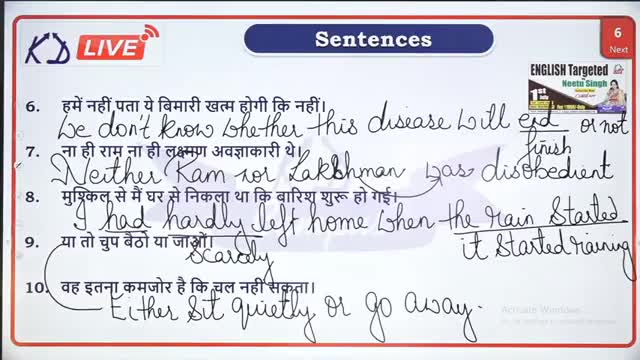 KD LIVE
Sentences
6
Next
ENGLISH Targeted
Neetu Singh
1st
6. हमें नहीं पता ये बिमारी खत्म होगी कि नहीं।
We don't know whether this disease will end or not
finish
7. ना ही राम ना ही लक्ष्मण अवज्ञाकारी थे।
Neither Ram nor Lakshman was disobedient
8. मुश्किल से मैं घर से निकला था कि बारिश शुरू हो गई।
I had hardly left home when the rain started
9. या तो चुप बैठो या जाओ।
Scarcely
it started raining
10. वह इतना कमजोर है कि चल नहीं सकता।
Either sit quietly or go away.
Activate Windows